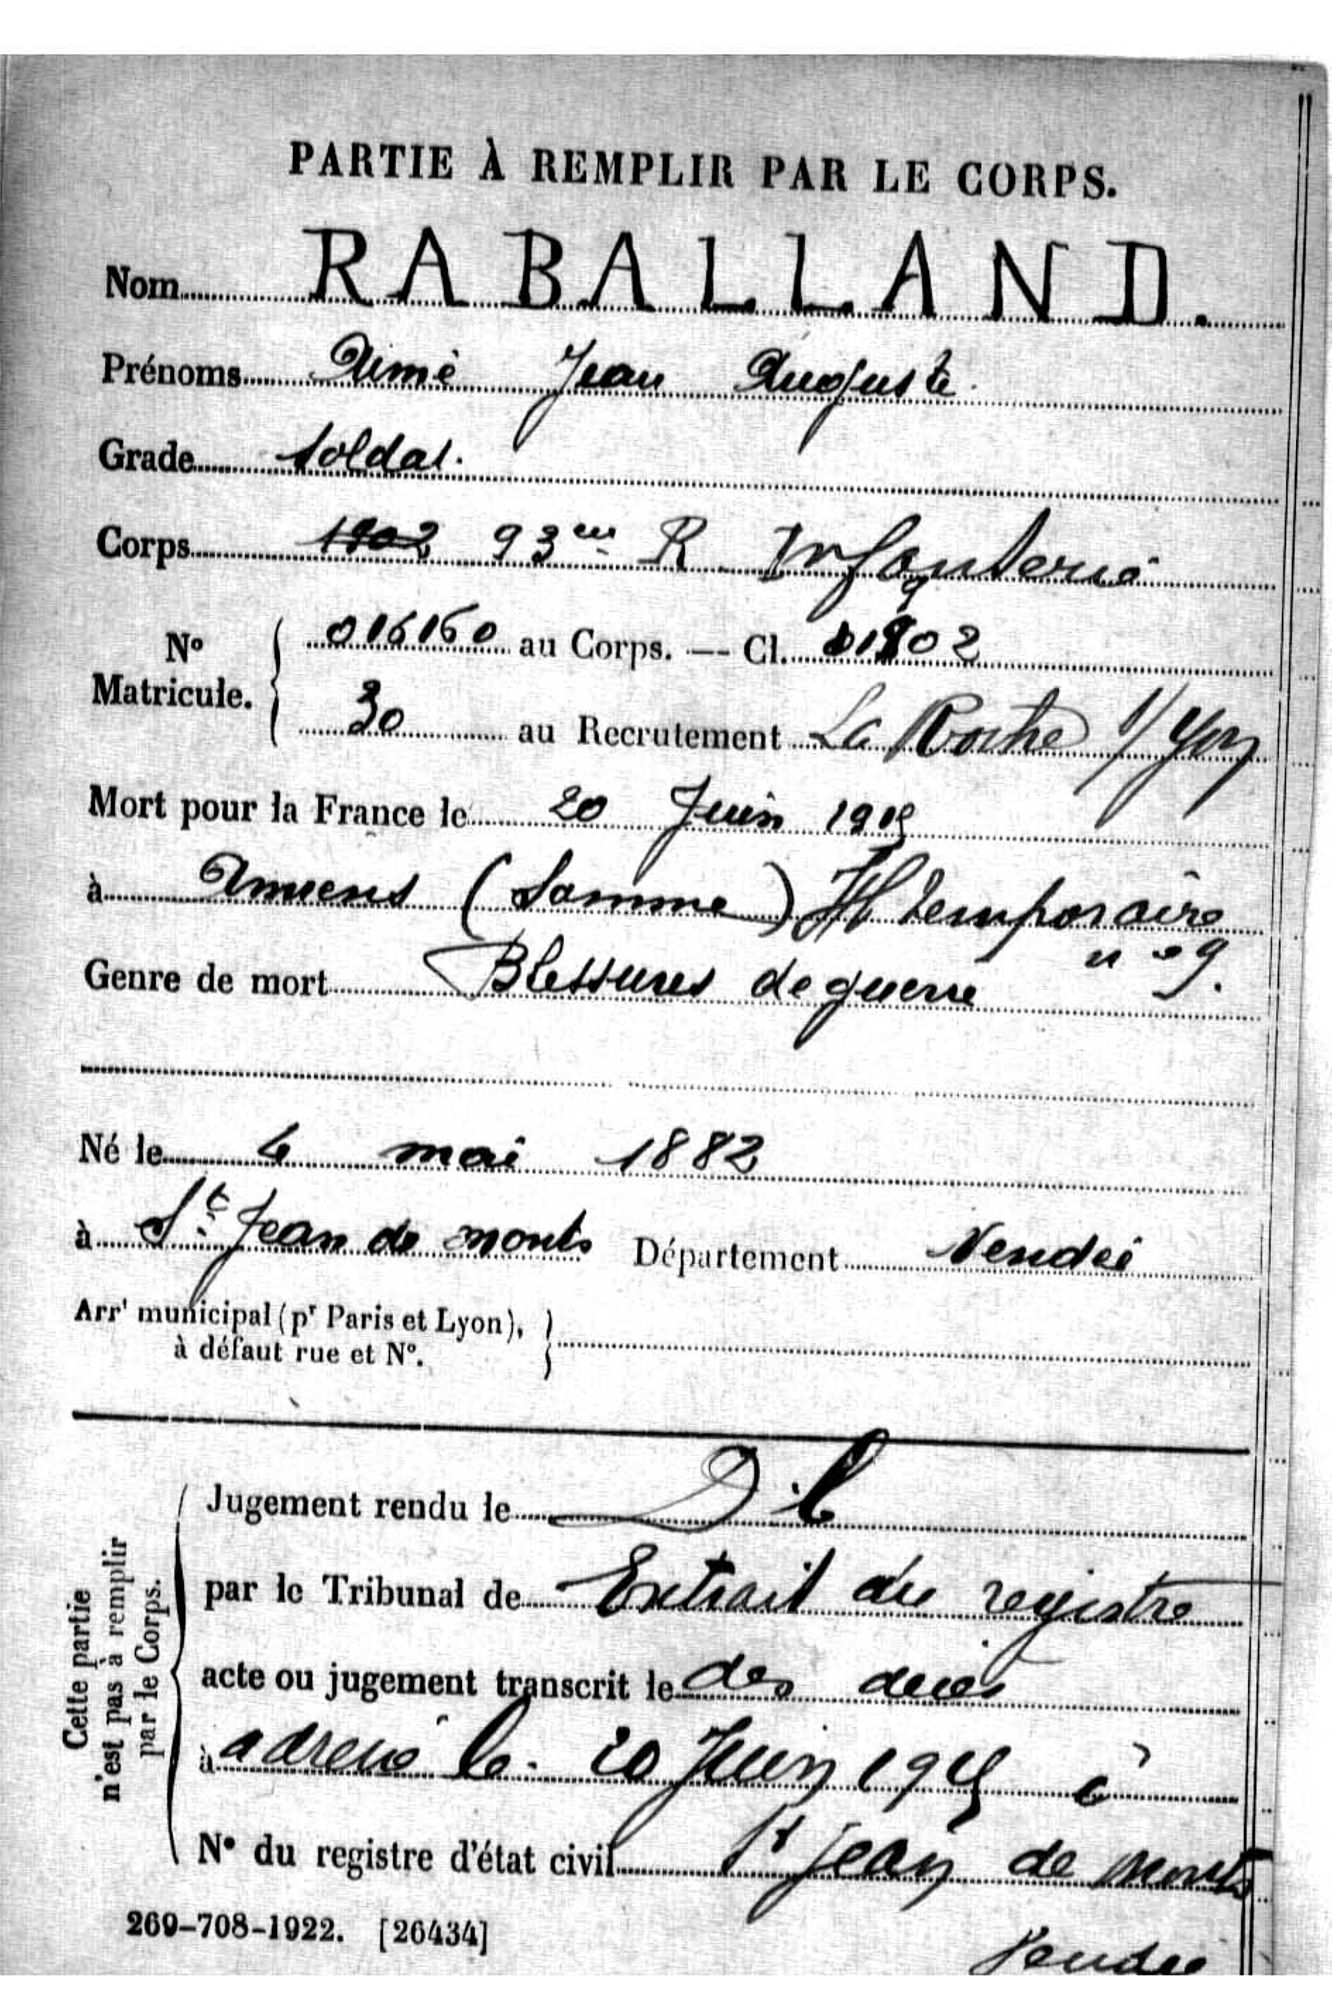 PARTIE À REMPLIR PAR LE CORPS.
Nom RABALLAND.
Prénoms Aimé Jean Auguste
Grade soldat.
Corps 1902 93me R Infanterie
No Matricule. 016160 au Corps. — Cl. 1902
30 au Recrutement La Roche s/ Yon
Mort pour la France le 20 Juin 1915
à Amiens (Somme) H temporaire
n° 9.
Genre de mort Blessures de guerre
Né le 4 mai 1882
à St Jean de monts Département Vendée
Arrt municipal (pr Paris et Lyon),
à défaut rue et No.
Cette partie
n'est pas à remplir
par le Corps.
Jugement rendu le
par le Tribunal de Extrait du registre
acte ou jugement transcrit le des décès
à adressé le 20 Juin 1915 à
No du registre d'état civil St Jean de Monts
Vendée
269-708-1922. [26434]